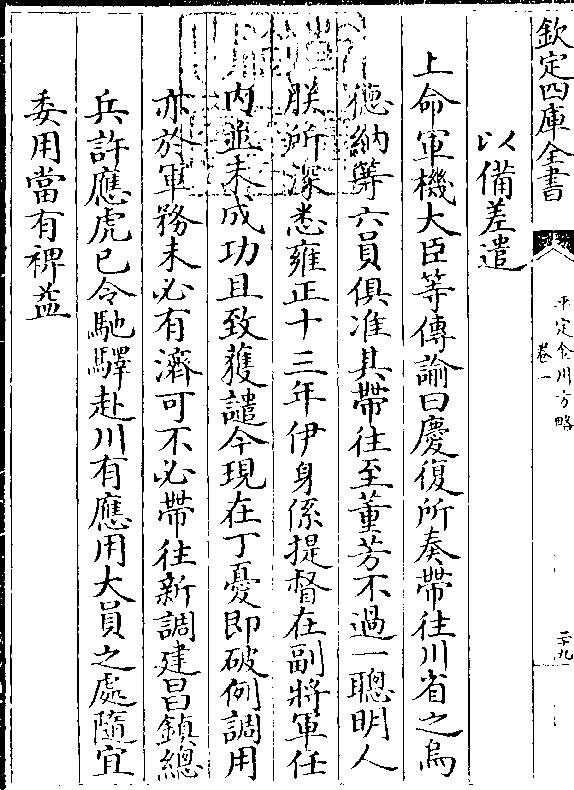 欽定四庫全書
平定金川方略
卷一
二十九
以備差遣
上命軍機大臣等傳諭曰慶復所奏帶往川省之烏
德納等六員俱准其帶往至董芳不過一聰明人
朕所深悉雍正十三年伊身係提督在副將軍任
内並未成功且致獲譴今現在丁憂即破例調用
亦於軍務未必有濟可不必帶往新調建昌鎮總
兵許應虎已令馳驛赴川有應用大員之處隨宜
委用當有裨益